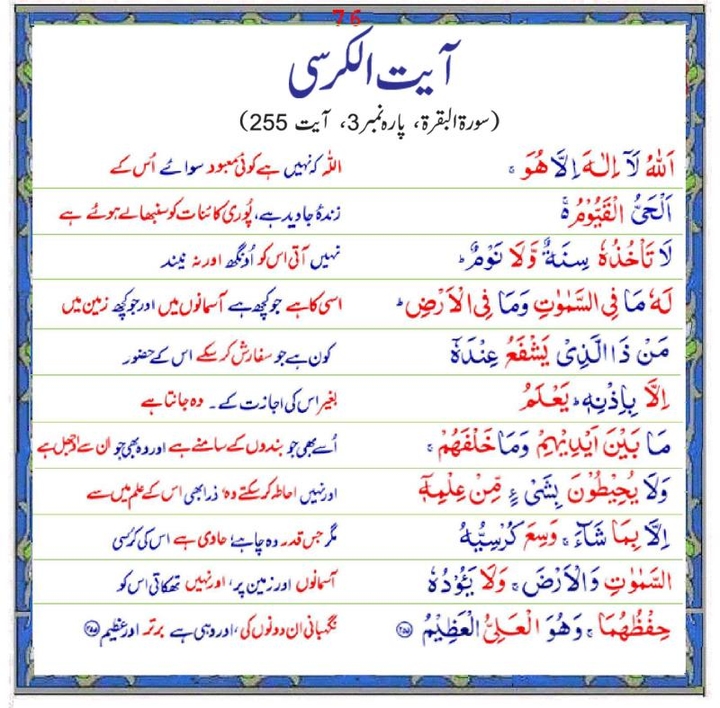 76
آیت الکرسی
(سورۃ البقرۃ، پارہ نمبر 3، آیت 255)
اَللّٰهُ لَاۤ اِلٰهَ اِلَّا هُوَ ۚ اللہ کہ نہیں ہے کوئی معبود سوائے اُس کے
اَلْحَیُّ الْقَیُّوْمُ ۬ۚ زندۂ جاوید ہے، پُوری کائنات کو سنبھالے ہوئے ہے
لَا تَاْخُذُهٗ سِنَةٌ وَّلَا نَوْمٌ ؕ نہیں آتی اس کو اُونگھ اور نہ نیند
لَهٗ مَا فِی السَّمٰوٰتِ وَمَا فِی الْاَرْضِ ؕ اسی کا ہے جو کچھ ہے آسمانوں میں اور جو کچھ زمین میں
مَنْ ذَا الَّذِیْ یَشْفَعُ عِنْدَهٗۤ کون ہے جو سفارش کر سکے اس کے حضور
اِلَّا بِاِذْنِهٖ ؕ یَعْلَمُ بغیر اس کی اجازت کے۔ وہ جانتا ہے
مَا بَیْنَ اَیْدِیْهِمْ وَمَا خَلْفَهُمْ ۚ اُسے بھی جو بندوں کے سامنے ہے اور وہ بھی جو ان سے اوجھل ہے
وَلَا یُحِیْطُوْنَ بِشَیْءٍ مِّنْ عِلْمِهٖۤ اور نہیں احاطہ کر سکتے وہ ذرا بھی اس کے علم میں سے
اِلَّا بِمَا شَآءَ ۚ وَسِعَ كُرْسِیُّهُ مگر جس قدر وہ چاہے؛ حاوی ہے اس کی کُرسی
السَّمٰوٰتِ وَالْاَرْضَ ۚ وَلَا یَـُٔوْدُهٗ آسمانوں اور زمین پر، اور نہیں تھکاتی اس کو
حِفْظُهُمَا ۚ وَهُوَ الْعَلِیُّ الْعَظِیْمُ ۝۲۵۵ نگہبانی ان دونوں کی، اور وہی ہے برتر اور عظیم ۝۲۵۵